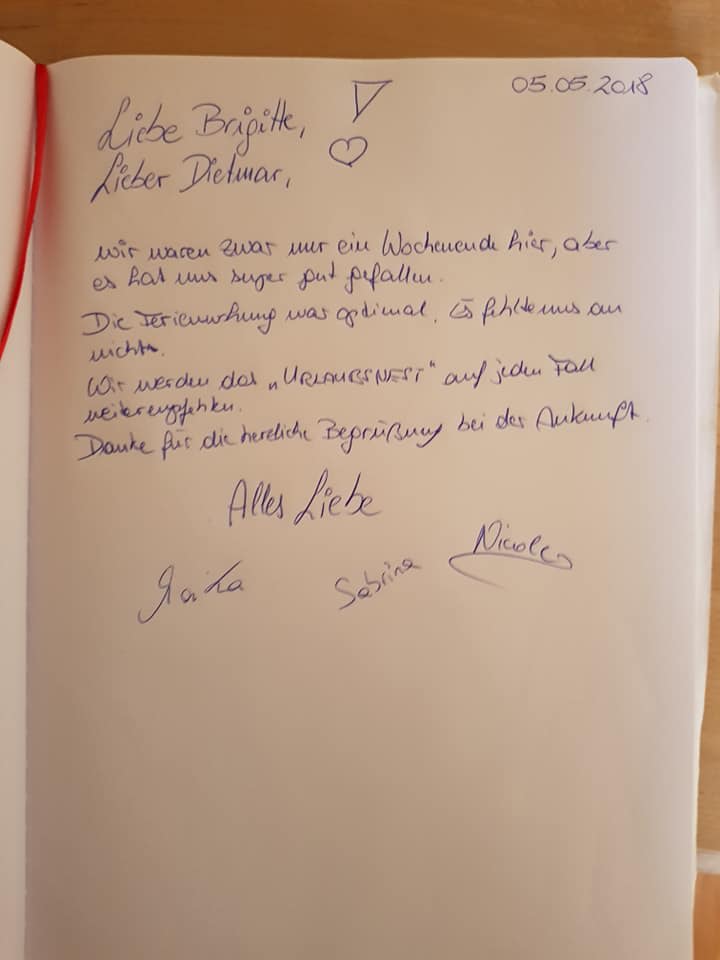 05.05.2018
Liebe Brigitte,
Lieber Dietmar,
wir waren zwar nur ein Wochenende hier, aber
es hat uns super gut gefallen.
Die Ferienwohnung war optimal. Es fehlte uns an
nichts.
Wir werden das „URLAUBSNEST" auf jeden Fall
weiterempfehlen.
Danke für die herzliche Begrüßung bei der Ankunft.
Alles Liebe
Sabrina Nicole